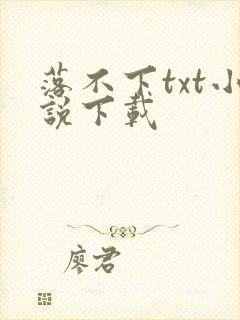 落不下txt小
說下載
廖君